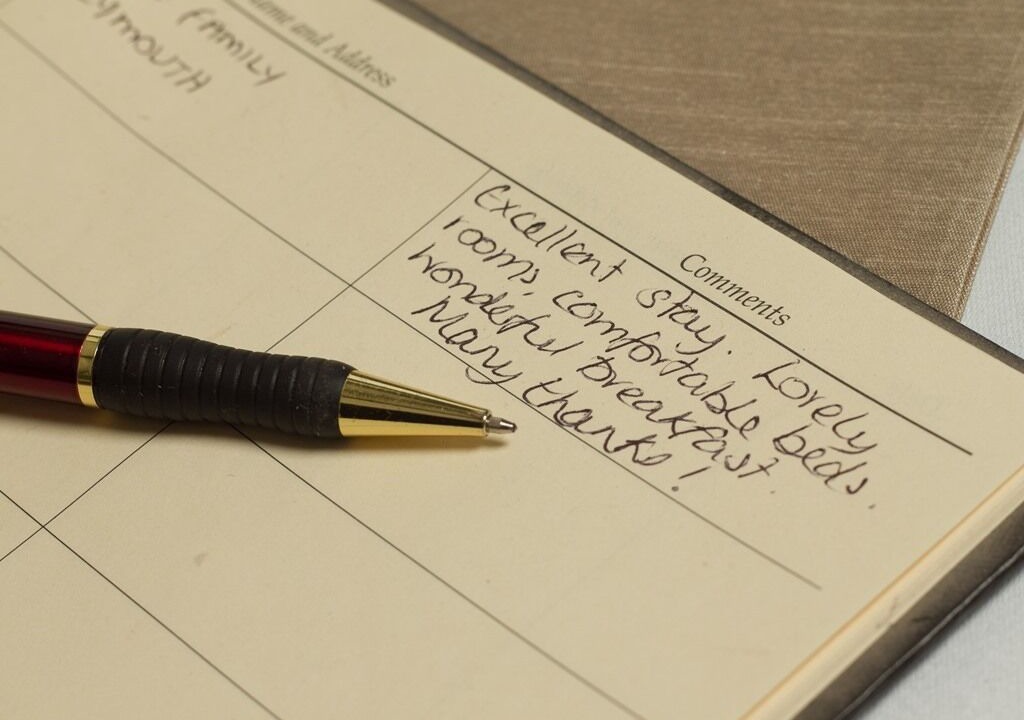 and Address
FAMILY
Comments
Excellent stay. Lovely
rooms, comfortable beds.
Wonderful breakfast.
Many thanks!